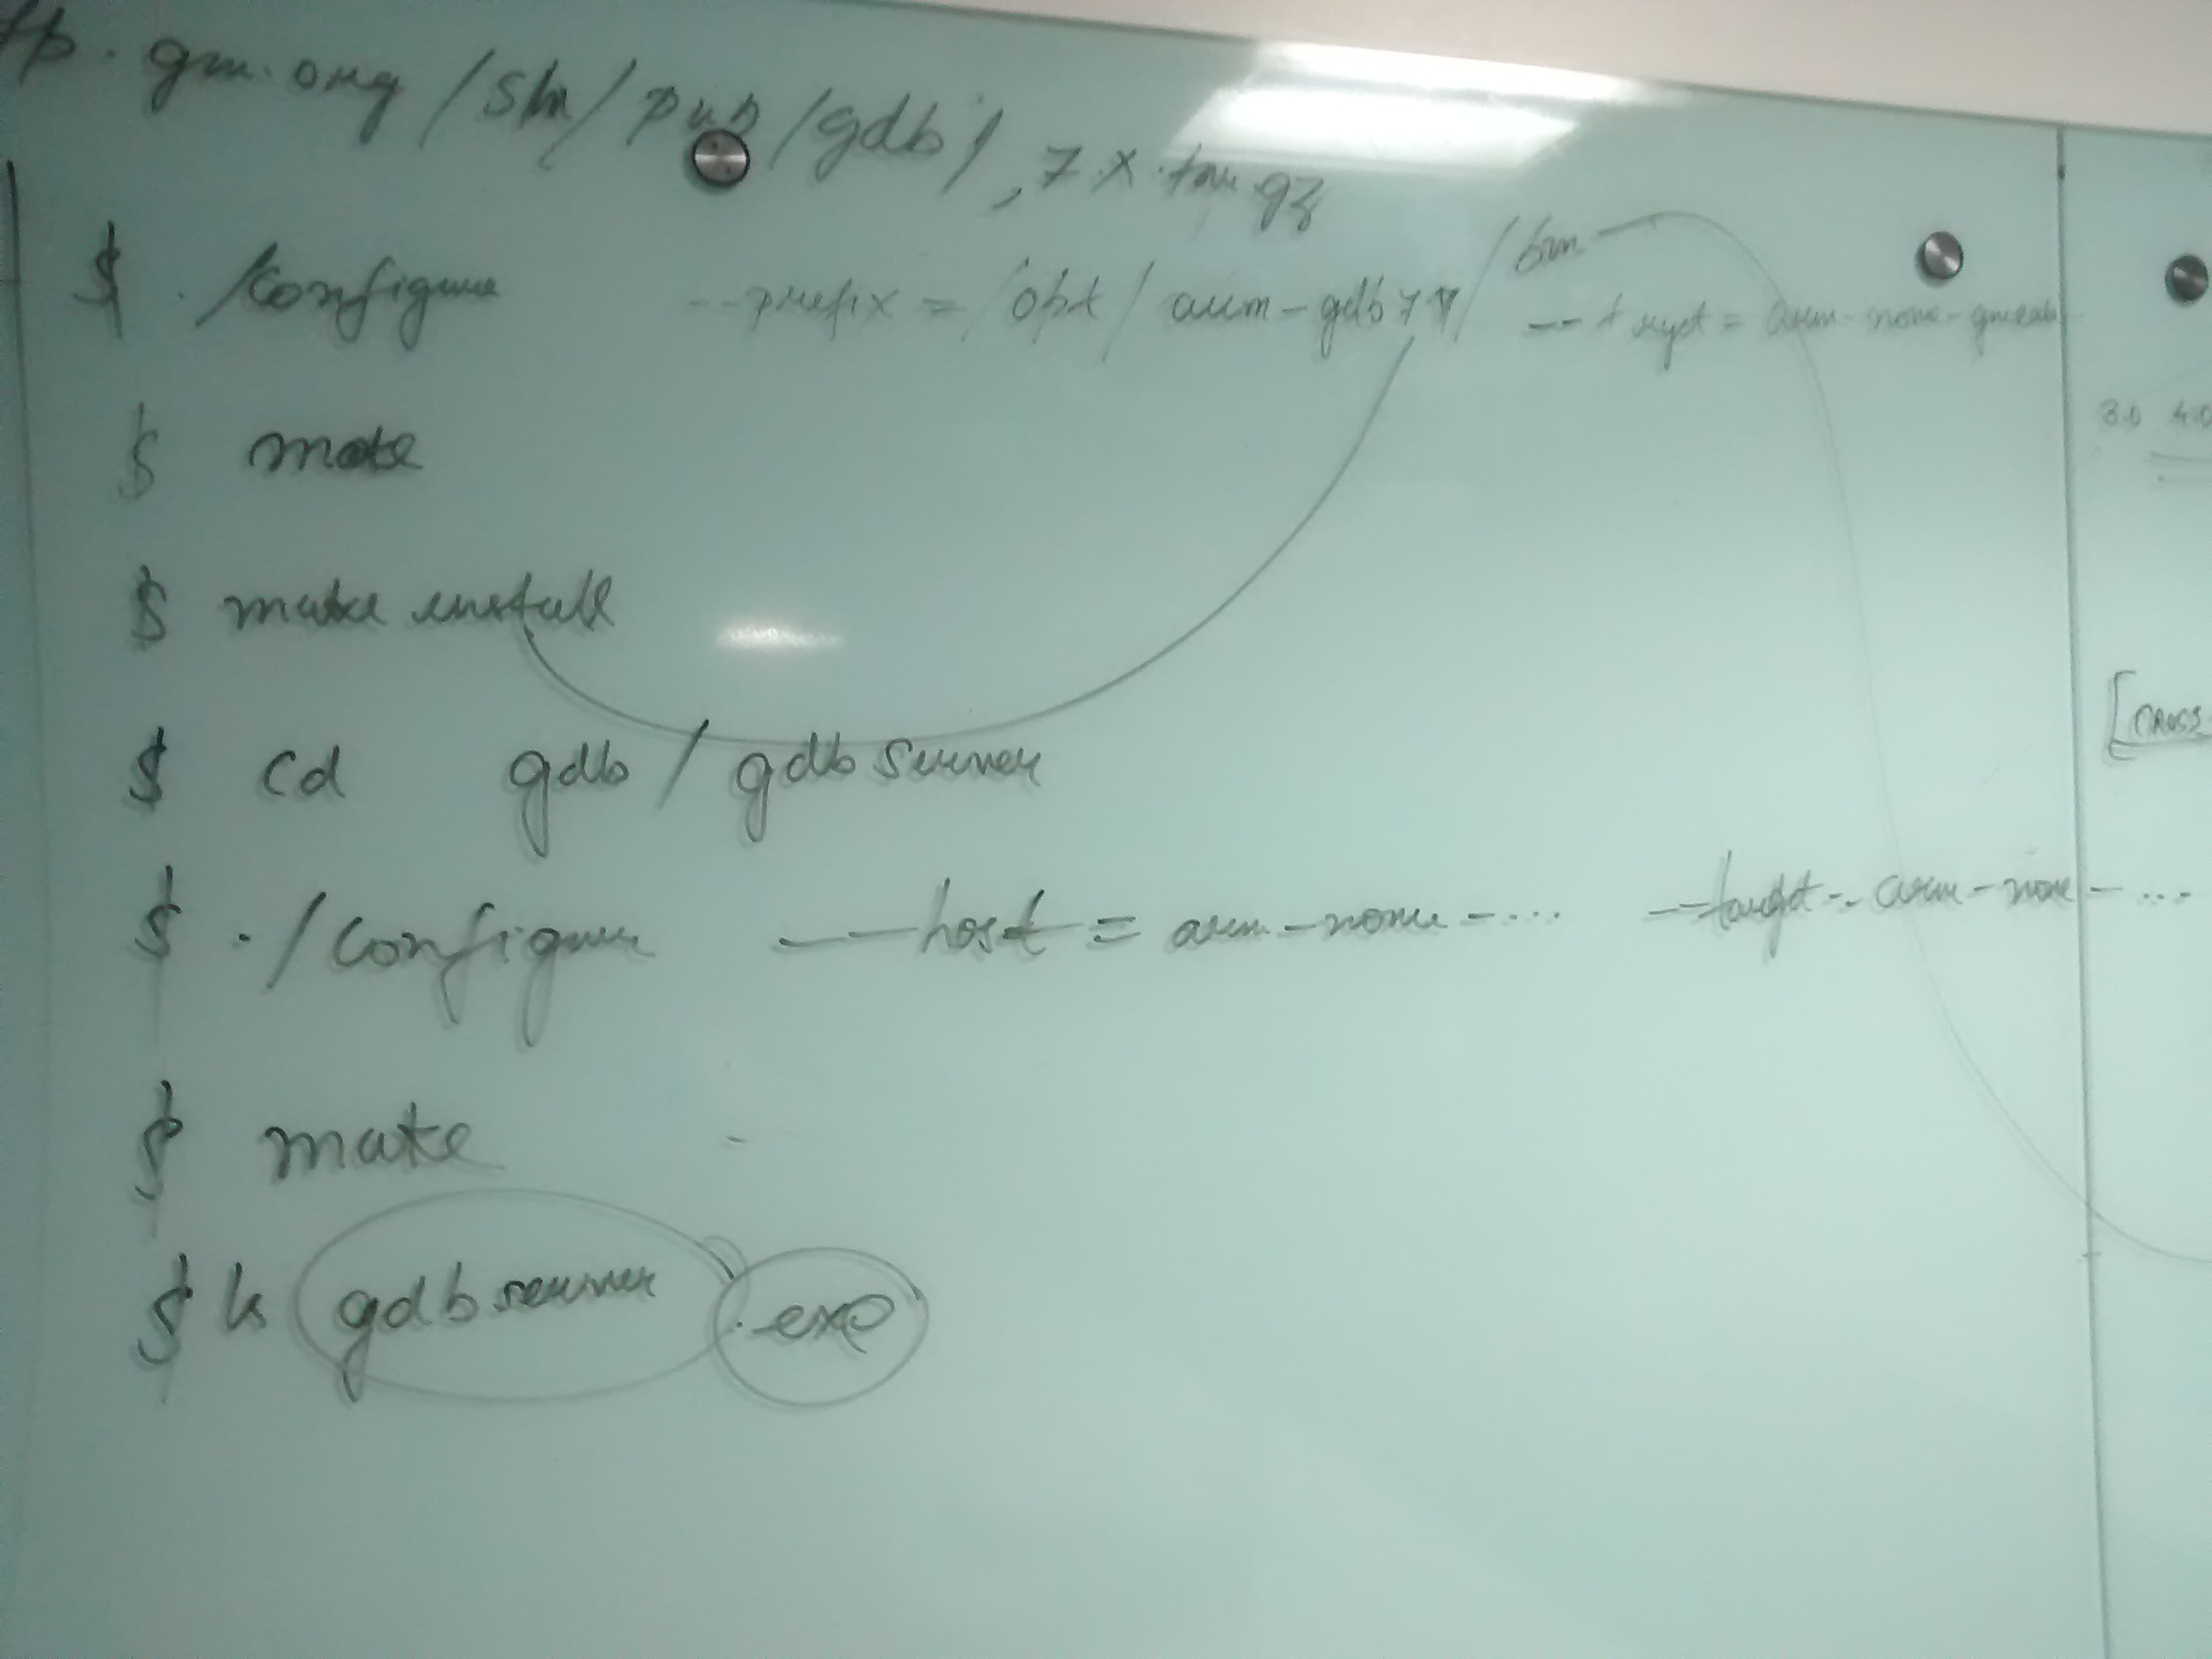 ftp.gnu.org/sln/pub/gdb/, 7.x.tar.gz
/bin
$ ./configure --prefix=/opt/arm-gdb77/ --target=arm-none-gnueabi
3.0 4.0
$ make
$ make install
[CROSS
$ cd gdb/gdbserver
$ ./configure --host=arm-none-... --target=arm-none-...
$ make
$ ls gdbserver .exe